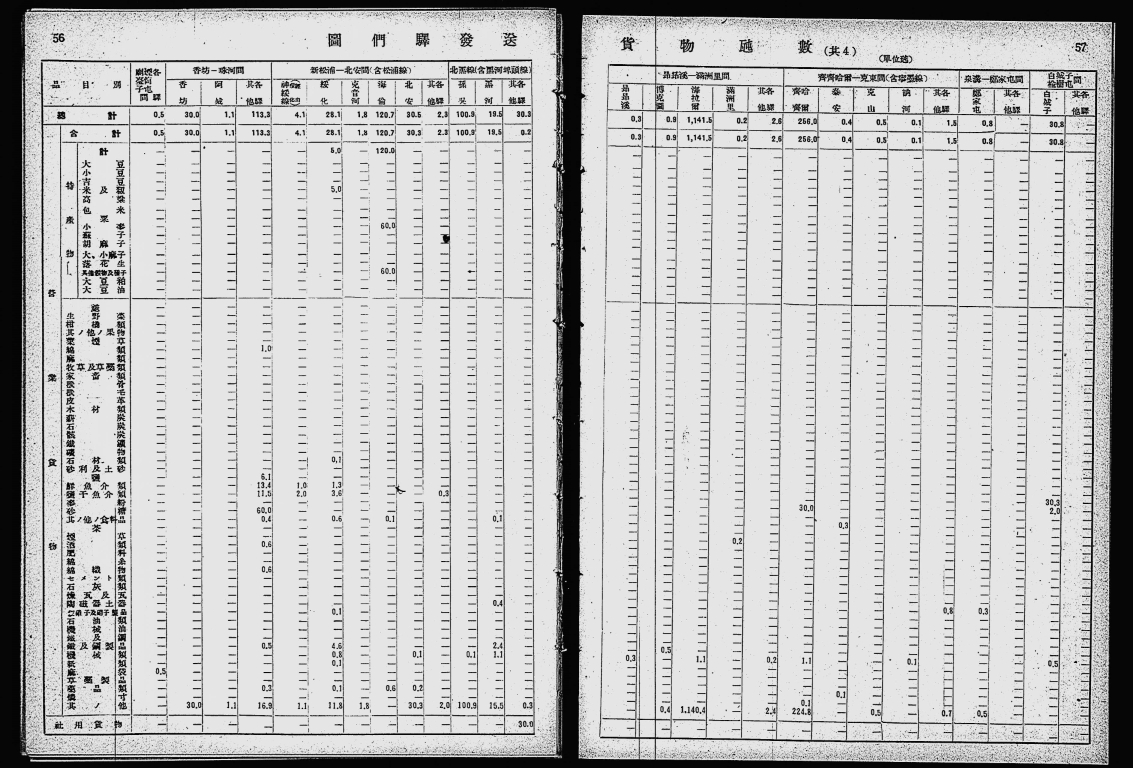 56
圖們驛發送
品目別
香坊—珠河間
新松浦—北安間(含松浦線)
北黑線(含黑河埠頭線)
香坊
阿城
其各他驛
綏化
克音河
海倫
北安
其各他驛
孫吳
黑河
其各他驛
總計 0.5 30.0 1.1 113.3 4.1 28.1 1.8 120.7 30.5 2.3 100.9 19.5 30.3
合計 0.5 30.0 1.1 113.3 4.1 28.1 1.8 120.7 30.3 2.3 100.9 19.5 0.2
計 5.0 120.0
大豆
小豆
吉豆
米及籾 5.0
高粱
包米
粟
小麥 60.0
蘇子
胡麻子
大、小麻子
落花生
其他穀物及種子 60.0
大豆粕
大豆油
特產物
營業貨物
生野菜
柑橘類
其ノ他ノ果物
葉煙草
綿類 1.0
麻類
牧草及草藁類
家畜類
獸骨
獸毛
皮革
木材類
薪炭
石炭
骸炭
鐵鑛
礦物
石材類 0.1
砂利及土砂
鹽 6.1
鮮魚介類 13.4 1.0 1.3
鹽干魚介類 11.5 2.0 3.6 0.3
麥粉
砂糖 60.0
其ノ他ノ食料品 0.4 0.6 0.1 0.1
茶
煙草
酒類 0.6
肥料
綿糸
綿織物 0.6
セメント類
石灰類
煉瓦及瓦
陶磁器土器 0.4
硝子及硝子製品 0.1
石油類
機械油
鐵及鋼
鐵及鋼製品 0.5 4.6 2.4
機械類 0.8 0.1 0.1 1.1
紙類 0.1
麻袋 0.5
草藁製品
藥品類 0.3 0.1 0.6 0.2
燐寸
其ノ他 30.0 1.1 16.9 1.1 11.8 1.8 30.3 2.0 100.9 15.5 0.3
社用貨物 30.0
貨物瓲數(共4)
57
(單位瓲)
昂昂溪—滿洲里間
齊齊哈爾—克東間(含寧墨線)
昂昂溪
博克圖
海拉爾
滿洲里
其各他驛
齊齊哈爾
泰安
克山
訥河
其各他驛
鄭家屯
其各他驛
白城子
其各他驛
0.3 0.9 1,141.5 0.2 2.6 256.0 0.4 0.5 0.1 1.5 0.8 — 30.8
0.3 0.9 1,141.5 0.2 2.6 256.0 0.4 0.5 0.1 1.5 0.8 — 30.8
30.3
30.0 2.0
0.3
0.2
0.8 0.3
0.5
0.3 1.1 0.2 1.1 0.1 0.5
0.1
0.1
0.4 1.140.4 2.4 224.8 0.5 0.7 0.5